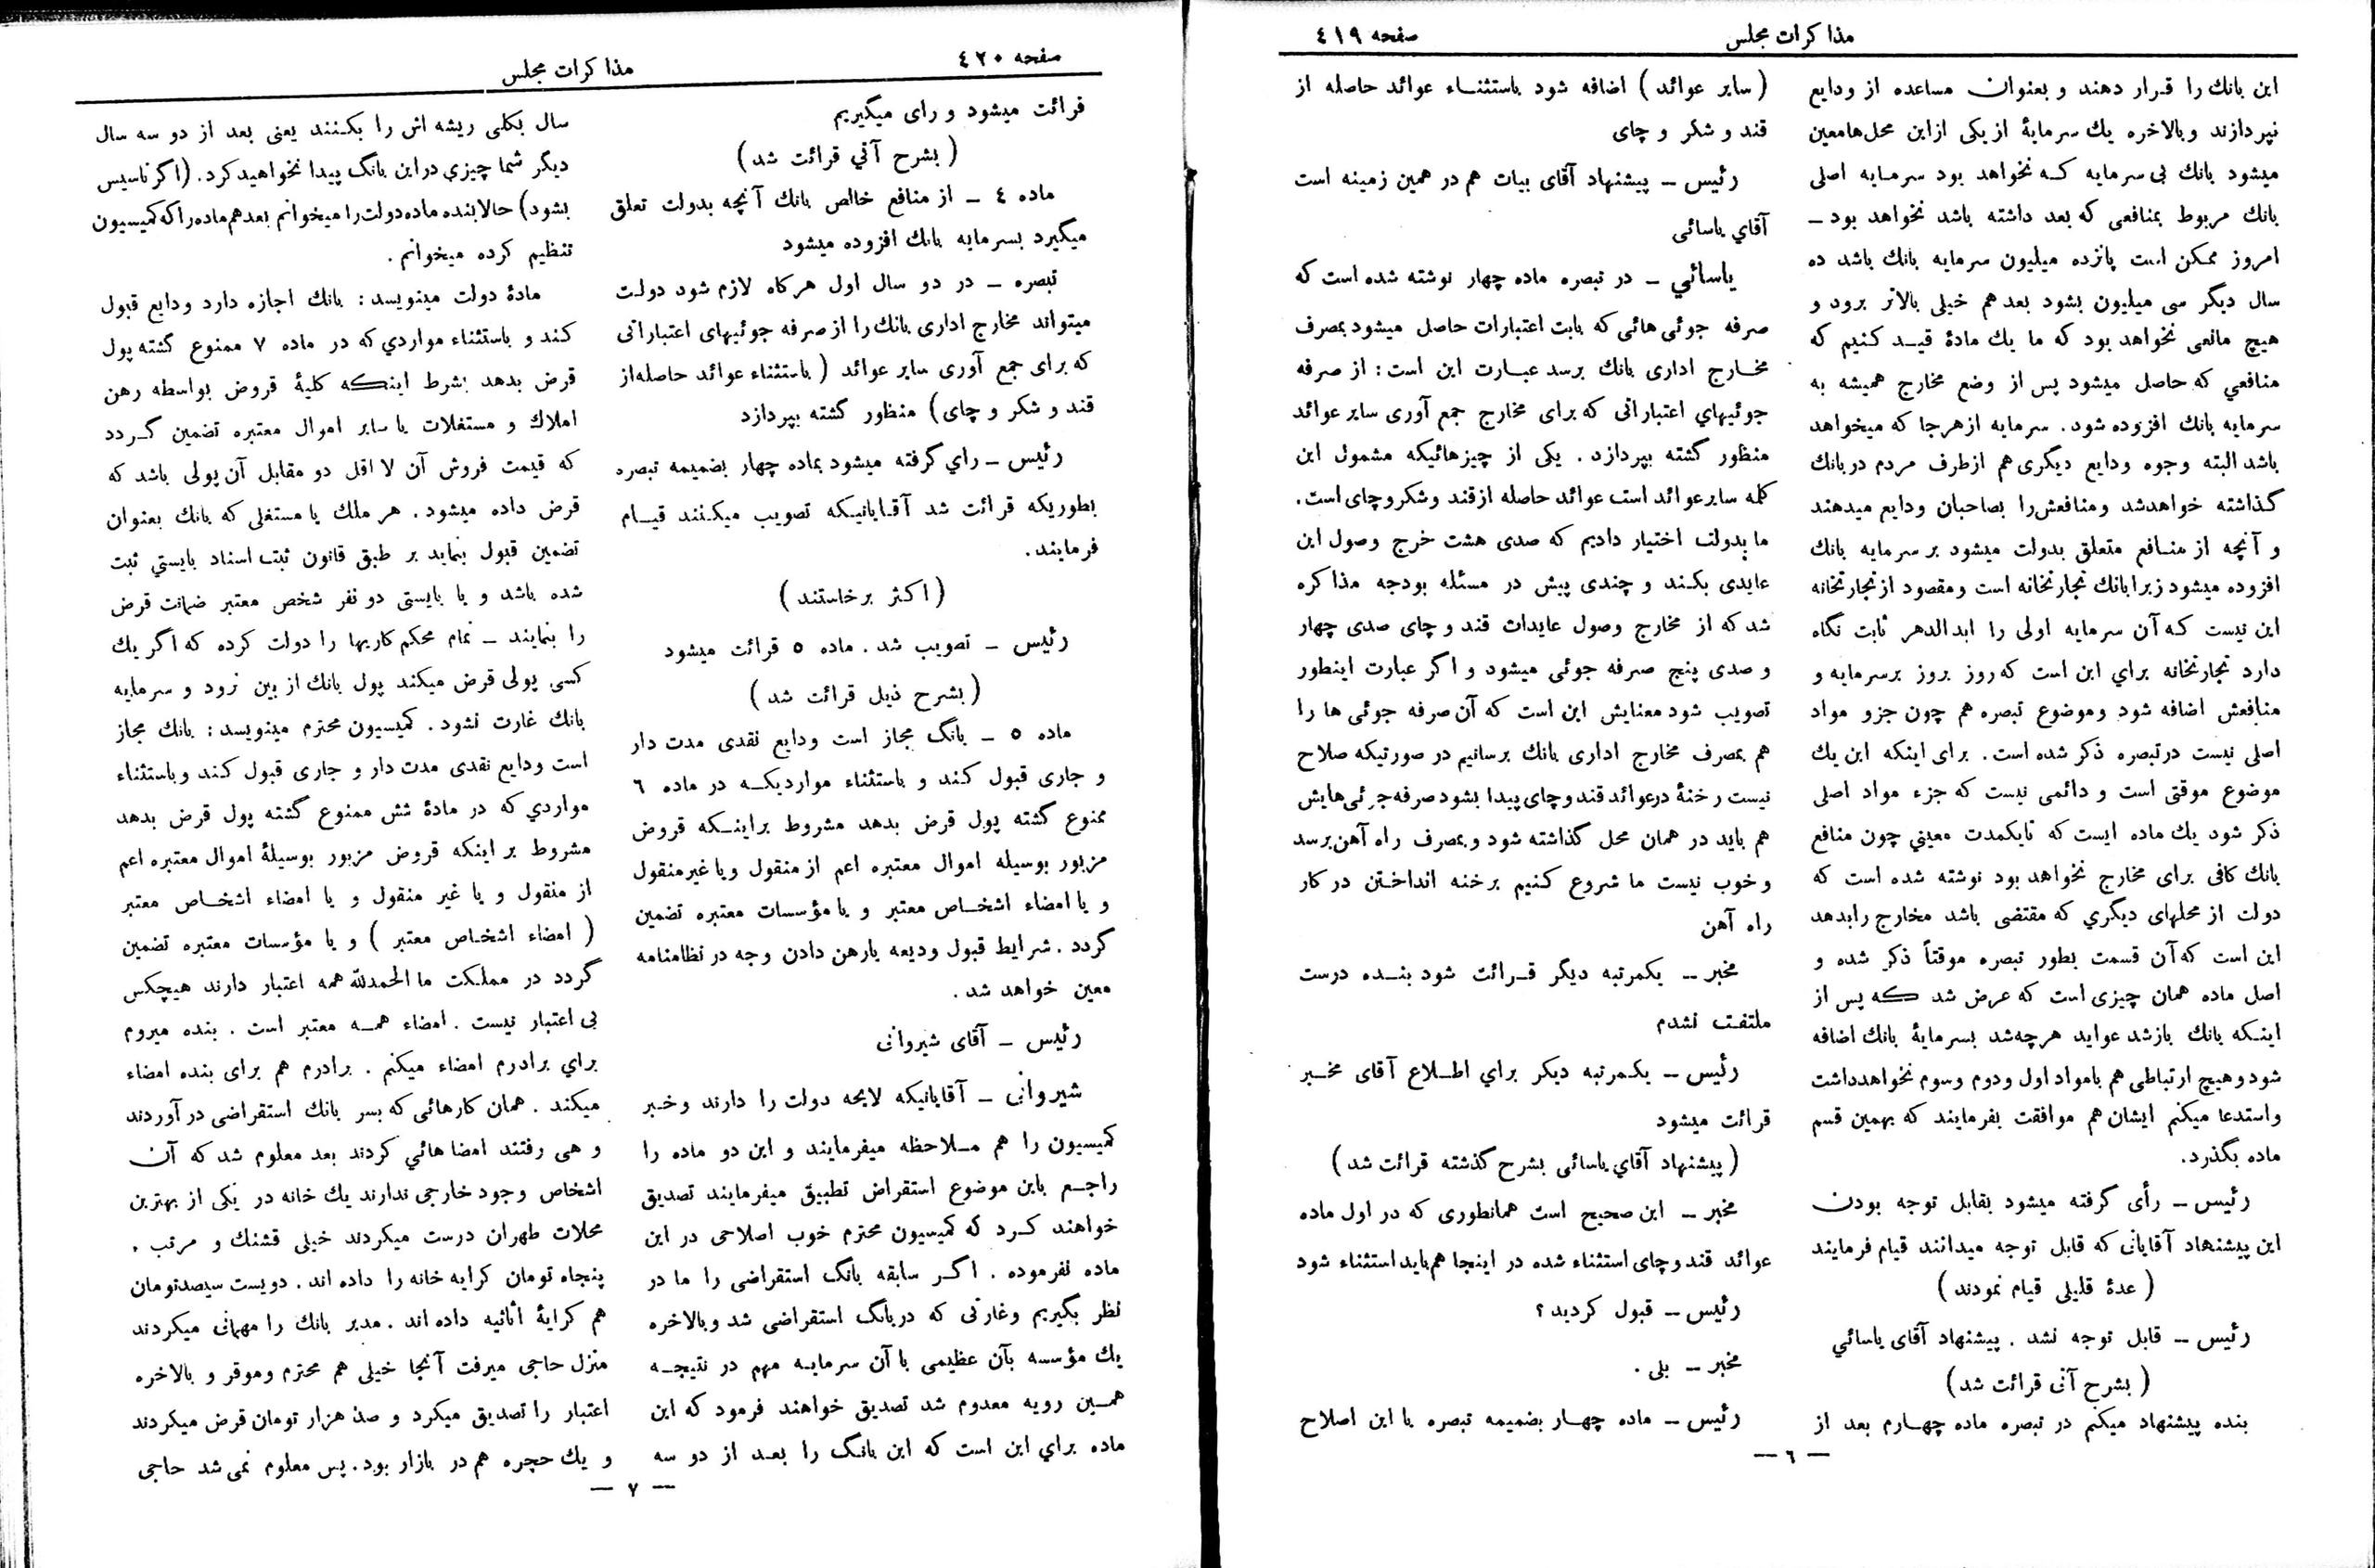 مذاکرات مجلس
صفحه ٤١٩
این بانك را قرار دهند و بعنوان مساعده از ودایع
نپردازند و بالاخره یك سرمایۀ از یکی از این محل‌ها معین
میشود بانك بی سرمایه که نخواهد بود سرمایه اصلی
بانك مربوط بمنافعی که بعد داشته باشد نخواهد بود ـ
امروز ممکن است پانزده میلیون سرمایه بانك باشد ده
سال دیگر سی میلیون بشود بعد هم خیلی بالاتر برود و
هیچ مانعی نخواهد بود که ما یك مادۀ قید کنیم که
منافعي که حاصل میشود پس از وضع مخارج همیشه به
سرمایه بانك افزوده شود. سرمایه از هر جا که میخواهد
باشد البته وجوه ودایع دیگری هم از طرف مردم در بانك
گذاشته خواهد شد و منافعش را بصاحبان ودایع میدهند
و آنچه از منافع متعلق بدولت میشود بر سرمایه بانك
افزوده میشود زیرا بانك تجارتخانه است و مقصود از تجارتخانه
این نیست که آن سرمایه اولی را ابد الدهر ثابت نگاه
دارد تجارتخانه براي این است که روز بروز بر سرمایه و
منافعش اضافه شود و موضوع تبصره هم چون جزو مواد
اصلی نیست در تبصره ذکر شده است. برای اینکه این یك
موضوع موقتی است و دائمی نیست که جزء مواد اصلی
ذکر شود یك ماده ایست که تا یکمدت معیني چون منافع
بانك کافی برای مخارج نخواهد بود نوشته شده است که
دولت از محلهای دیگري که مقتضی باشد مخارج را بدهد
این است که آن قسمت بطور تبصره موقتاً ذکر شده و
اصل ماده همان چیزی است که عرض شد که پس از
اینکه بانك باز شد عواید هر چه شد بسرمایۀ بانك اضافه
شود و هیچ ارتباطی هم با مواد اول و دوم و سوم نخواهد داشت
و استدعا میکنم ایشان هم موافقت بفرمایند که بهمین قسم
ماده بگذرد.
رئیس ـ رأی گرفته میشود بقابل توجه بودن
این پیشنهاد آقایانی که قابل توجه میدانند قیام فرمایند
( عدۀ قلیلی قیام نمودند )
رئیس ـ قابل توجه نشد . پیشنهاد آقای یاسائي
( بشرح آتی قرائت شد)
بنده پیشنهاد میکنم در تبصره ماده چهارم بعد از
( سایر عوائد ) اضافه شود باستثناء عوائد حاصله از
قند و شکر و چای
رئیس ـ پیشنهاد آقای بیات هم در همین زمینه است
آقاي یاسائی
یاسائي ـ در تبصره ماده چهار نوشته شده است که
صرفه جوئی هائی که بابت اعتبارات حاصل میشود بمصرف
مخارج اداری بانك برسد عبارت این است : از صرفه
جوئیهاي اعتباراتی که برای مخارج جمع آوری سایر عوائد
منظور گشته بپردازد . یکی از چیزهائیکه مشمول این
کلمه سایر عوائد است عوائد حاصله از قند و شکر و چای است.
ما بدولت اختیار دادیم که صدی هشت خرج وصول این
عایدی بکند و چندی پیش در مسئله بودجه مذاکره
شد که از مخارج وصول عایدات قند و چای صدی چهار
و صدی پنج صرفه جوئی میشود و اگر عبارت اینطور
تصویب شود معنایش این است که آن صرفه جوئی ها را
هم بمصرف مخارج اداری بانك برسانیم در صورتیکه صلاح
نیست رخنۀ در عوائد قند و چای پیدا بشود صرفه جوئی هایش
هم باید در همان محل گذاشته شود و بمصرف راه آهن برسد
و خوب نیست ما شروع کنیم برخنه انداختن در کار
راه آهن
مخبر ـ یکمرتبه دیگر قرائت شود بنده درست
ملتفت نشدم
رئیس ـ یکمرتبه دیگر براي اطلاع آقای مخبر
قرائت میشود
( پیشنهاد آقاي یاسائی بشرح گذشته قرائت شد )
مخبر ـ این صحیح است همانطوری که در اول ماده
عوائد قند و چای استثناء شده در اینجا هم باید استثناء شود
رئیس ـ قبول کردید ؟
مخبر ـ بلی .
رئیس ـ ماده چهار بضمیمه تبصره با این اصلاح
— ٦ —
صفحه ٤٢٠
مذاکرات مجلس
قرائت میشود و رای میگیریم
( بشرح آتي قرائت شد )
ماده ٤ ـ از منافع خالص بانك آنچه بدولت تعلق
میگیرد بسرمایه بانك افزوده میشود
تبصره ـ در دو سال اول هر گاه لازم شود دولت
میتواند مخارج اداری بانك را از صرفه جوئیهای اعتباراتی
که برای جمع آوری سایر عوائد ( باستثناء عوائد حاصله از
قند و شکر و چای ) منظور گشته بپردازد
رئیس ـ راي گرفته میشود بماده چهار بضمیمه تبصره
بطوریکه قرائت شد آقایانیکه تصویب میکنند قیام
فرمایند.
( اکثر برخاستند )
رئیس ـ تصویب شد . ماده ٥ قرائت میشود
( بشرح ذیل قرائت شد )
ماده ٥ ـ بانگ مجاز است ودایع نقدی مدت دار
و جاری قبول کند و باستثناء مواردیکه در ماده ٦
ممنوع گشته پول قرض بدهد مشروط بر اینکه قروض
مزبور بوسیله اموال معتبره اعم از منقول و یا غیر منقول
و یا امضاء اشخاص معتبر و یا مؤسسات معتبره تضمین
گردد . شرایط قبول ودیعه یا رهن دادن وجه در نظامنامه
معین خواهد شد .
رئیس ـ آقای شیروانی
شیروانی ـ آقایانیکه لایحه دولت را دارند و خبر
کمیسیون را هم ملاحظه میفرمایند و این دو ماده را
راجع باین موضوع استقراض تطبیق میفرمایند تصدیق
خواهند کرد که کمیسیون محترم خوب اصلاحی در این
ماده نفرموده . اگر سابقه بانگ استقراضی را ما در
نظر بگیریم و غارتی که در بانگ استقراضی شد و بالاخره
یك مؤسسه بآن عظیمی با آن سرمایه مهم در نتیجه
همین رویه معدوم شد تصدیق خواهند فرمود که این
ماده براي این است که این بانگ را بعد از دو سه
سال بکلی ریشه اش را بکنند یعنی بعد از دو سه سال
دیگر شما چیزی در این بانگ پیدا نخواهید کرد. (اگر تاسیس
بشود) حالا بنده ماده دولت را میخوانم بعد هم ماده را که کمیسیون
تنظیم کرده میخوانم .
مادۀ دولت مینویسد : بانك اجازه دارد ودایع قبول
کند و باستثناء مواردي که در ماده ۷ ممنوع گشته پول
قرض بدهد بشرط اینکه کلیۀ قروض بواسطه رهن
املاك و مستغلات یا سایر اموال معتبره تضمین گردد
که قیمت فروش آن لا اقل دو مقابل آن پولی باشد که
قرض داده میشود . هر ملك یا مستغلی که بانك بعنوان
تضمین قبول بنماید بر طبق قانون ثبت اسناد بایستي ثبت
شده باشد و یا بایستی دو نفر شخص معتبر ضمانت قرض
را بنمایند ـ تمام محکم کاریها را دولت کرده که اگر یك
کسی پولی قرض میکند پول بانك از بین نرود و سرمایه
بانك غارت نشود . کمیسیون محترم مینویسد : بانك مجاز
است ودایع نقدی مدت دار و جاری قبول کند و باستثناء
مواردي که در مادۀ شش ممنوع گشته پول قرض بدهد
مشروط بر اینکه قروض مزبور بوسیلۀ اموال معتبره اعم
از منقول و یا غیر منقول و یا امضاء اشخاص معتبر
( امضاء اشخاص معتبر ) و یا مؤسسات معتبره تضمین
گردد در مملکت ما الحمدلله همه اعتبار دارند هیچکس
بی اعتبار نیست . امضاء همه معتبر است . بنده میروم
براي برادرم امضاء میکنم . برادرم هم برای بنده امضاء
میکند . همان کارهائی که بسر بانك استقراضی در آوردند
و هی رفتند امضا هائي کردند بعد معلوم شد که آن
اشخاص وجود خارجی ندارند یك خانه در یکی از بهترین
محلات طهران درست میکردند خیلی قشنك و مرتب .
پنجاه تومان کرایه خانه را داده اند . دویست سیصد تومان
هم کرایۀ اثاثیه داده اند . مدیر بانك را مهمانی میکردند
منزل حاجی میرفت آنجا خیلی هم محترم و موقر و بالاخره
اعتبار را تصدیق میکرد و صد هزار تومان قرض میکردند
و یك حجره هم در بازار بود. پس معلوم نمی شد حاجی
— ۷ —